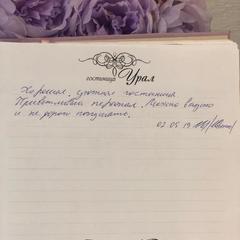 гостиница Урал
Хорошая, уютная гостиница.
Приветливый персонал. Можно вкусно
и не дорого покушать.
02.05.19